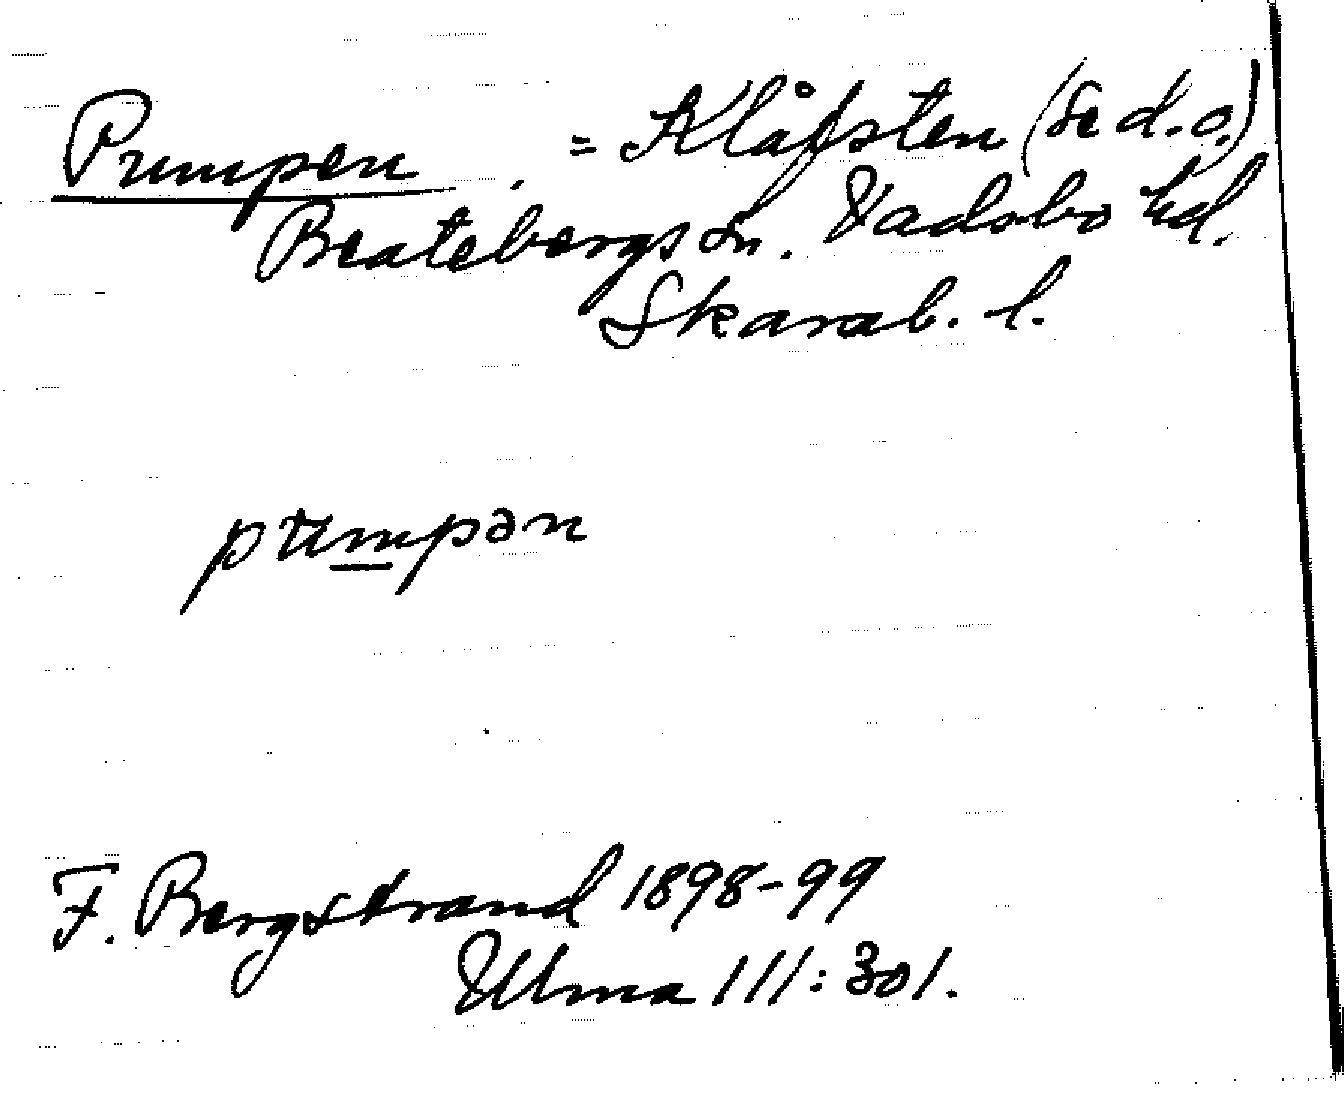 Pumpen. = Klåfsten (se d.o.)
Beatebergs sn. Vadsbo hd.
Skarab. l.
pumpən
F. Bergstrand 1898-99
Ulma 111:301.